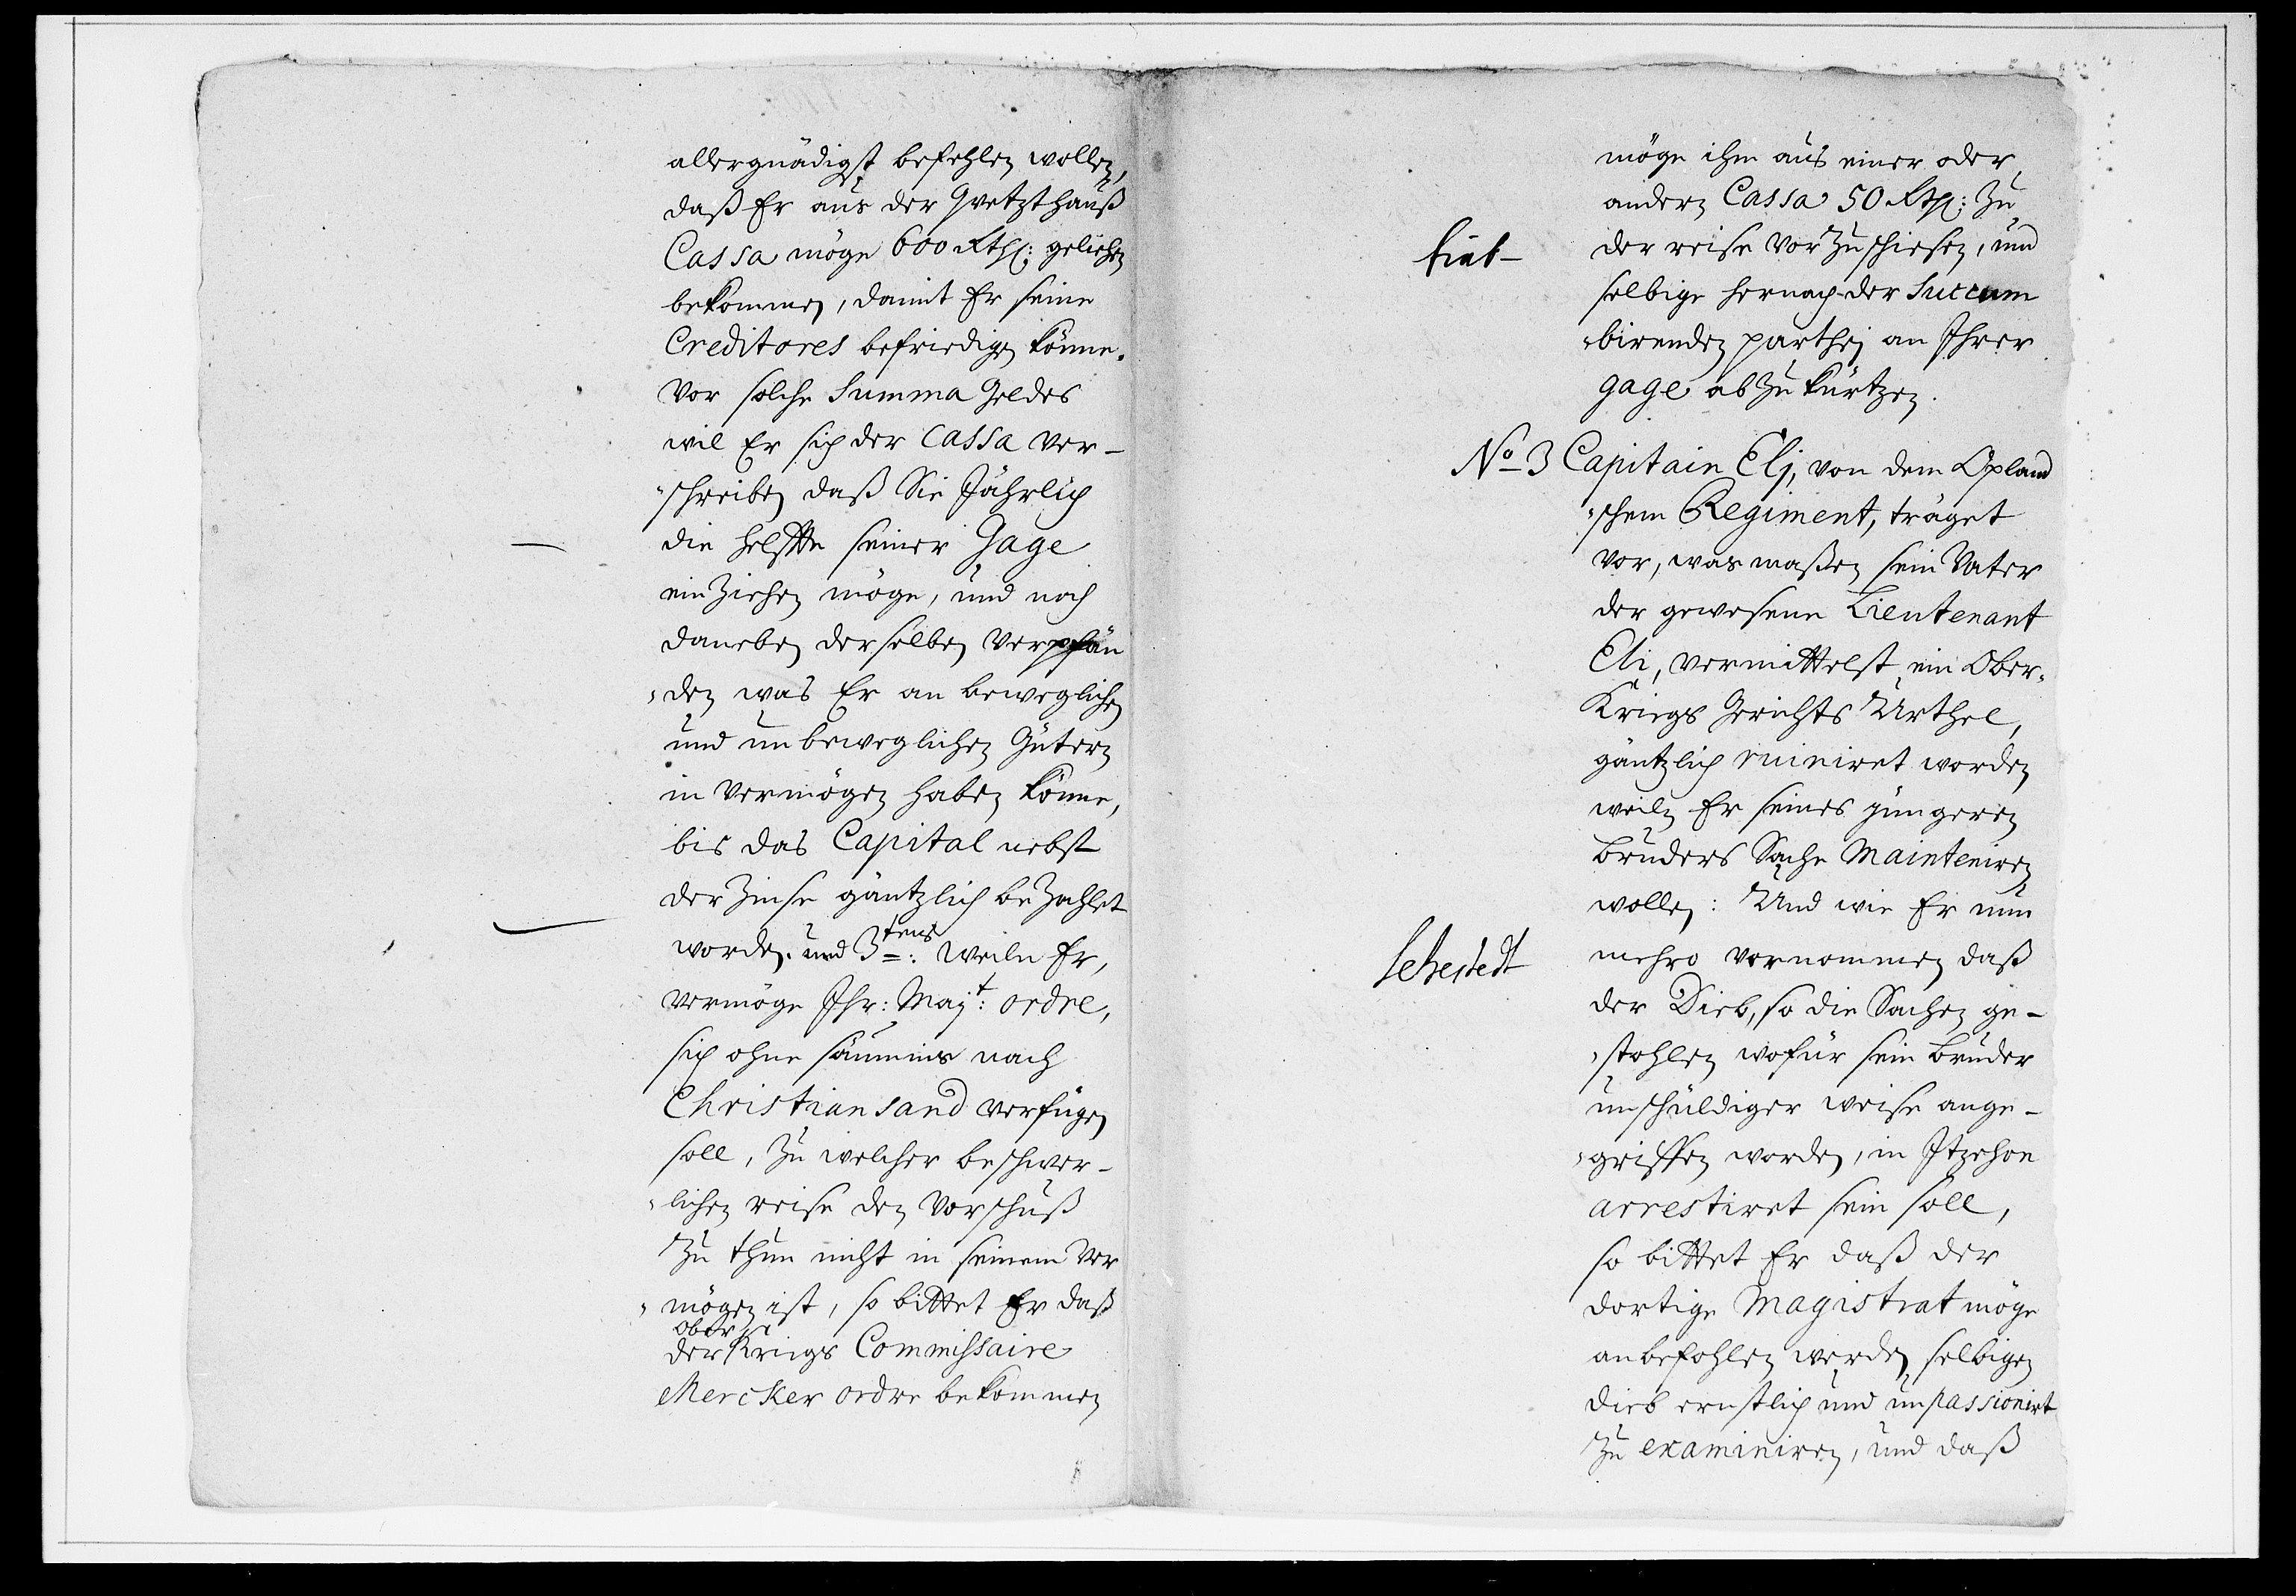 allergnädigst befehlen wollen,
daß Er aus der Qvetzthauß
Cassa möge 600 Rthl: geliehen
bekommen, damit Er seine
Creditores befriedigen könne.
Vor solche Summa Geldes
wil Er sich der Cassa ver-
schreiben daß Sie Jährlich
die helffte seiner Gage
ein Ziehen möge, und noch
daneben derselben Verpfän
den was Er an beweglichen
und unbeweglichen Gütern
in Vermögen haben könne,
bis das Capital nebst
der Zinse gäntzlich beZahlet
worden. und 3tens: Weiln Er,
vermöge Ihr: Majt: ordre,
sich ohne säumnis nach
Christiansand verfügen
soll, Zu welcher beschwer-
lichen reise den Vorschuß
Zu thun nicht in seinem Ver
mögen ist, so bittet Er daß
ober
der Kriegs Commissaire
Mercker ordre bekommen
möge ihm aus einer oder
andern Cassa 50 Rthl: Zu
fiat
der reise vor Zu schiesen, und
selbige hernach der Succum
birenden parthej an Ihrer
gage ab Zu kürtzen.
No 3 Capitain Elj, von dem Opland
schem Regiment, träget
vor, was maßen sein Vater
der gewesene Lieutenant
Eli, vermittelst ein Ober-
Kriegs Gerichts Urthel,
gäntzlich ruiniret worden
weiln Er seines jüngeren
bruders Sache Mainteniren
wollen: Und wie Er nun
Sehestedt
mehro vernommen daß
der Dieb, so die Sachen ge-
stohlen wofür sein bruder
unschuldiger weise ange-
griffen worden, in Itzehoe
arrestiret sein soll,
so bittet Er daß der
dortige Magistrat möge
anbefohlen werden selbigen
dieb ernstlich und unpassionirt
Zu examiniren, und daß